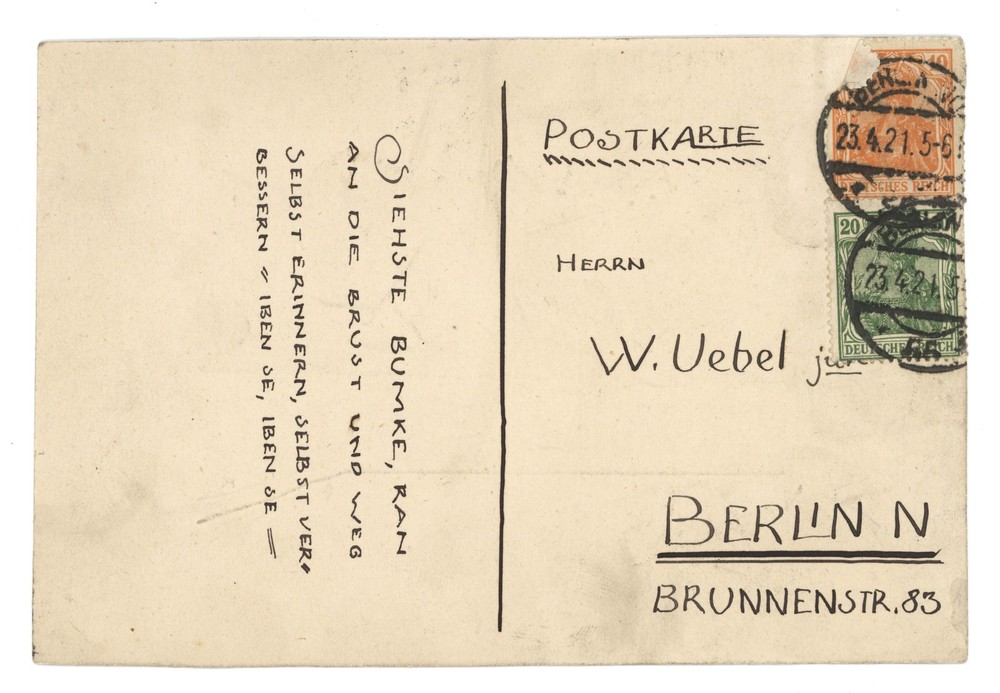 POSTKARTE
HERRN
W. Uebel jun.
BERLIN N
BRUNNENSTR. 83
SIEHSTE BUMKE, RAN
AN DIE BRUST UND WEG
SELBST ERINNERN, SELBST VER-
BESSERN = IBEN SE, IBEN SE =
10
DEUTSCHES REICH
BERLIN
23.4.21. 5-6
20
DEUTSCHES REICH
23.4.21. 5-